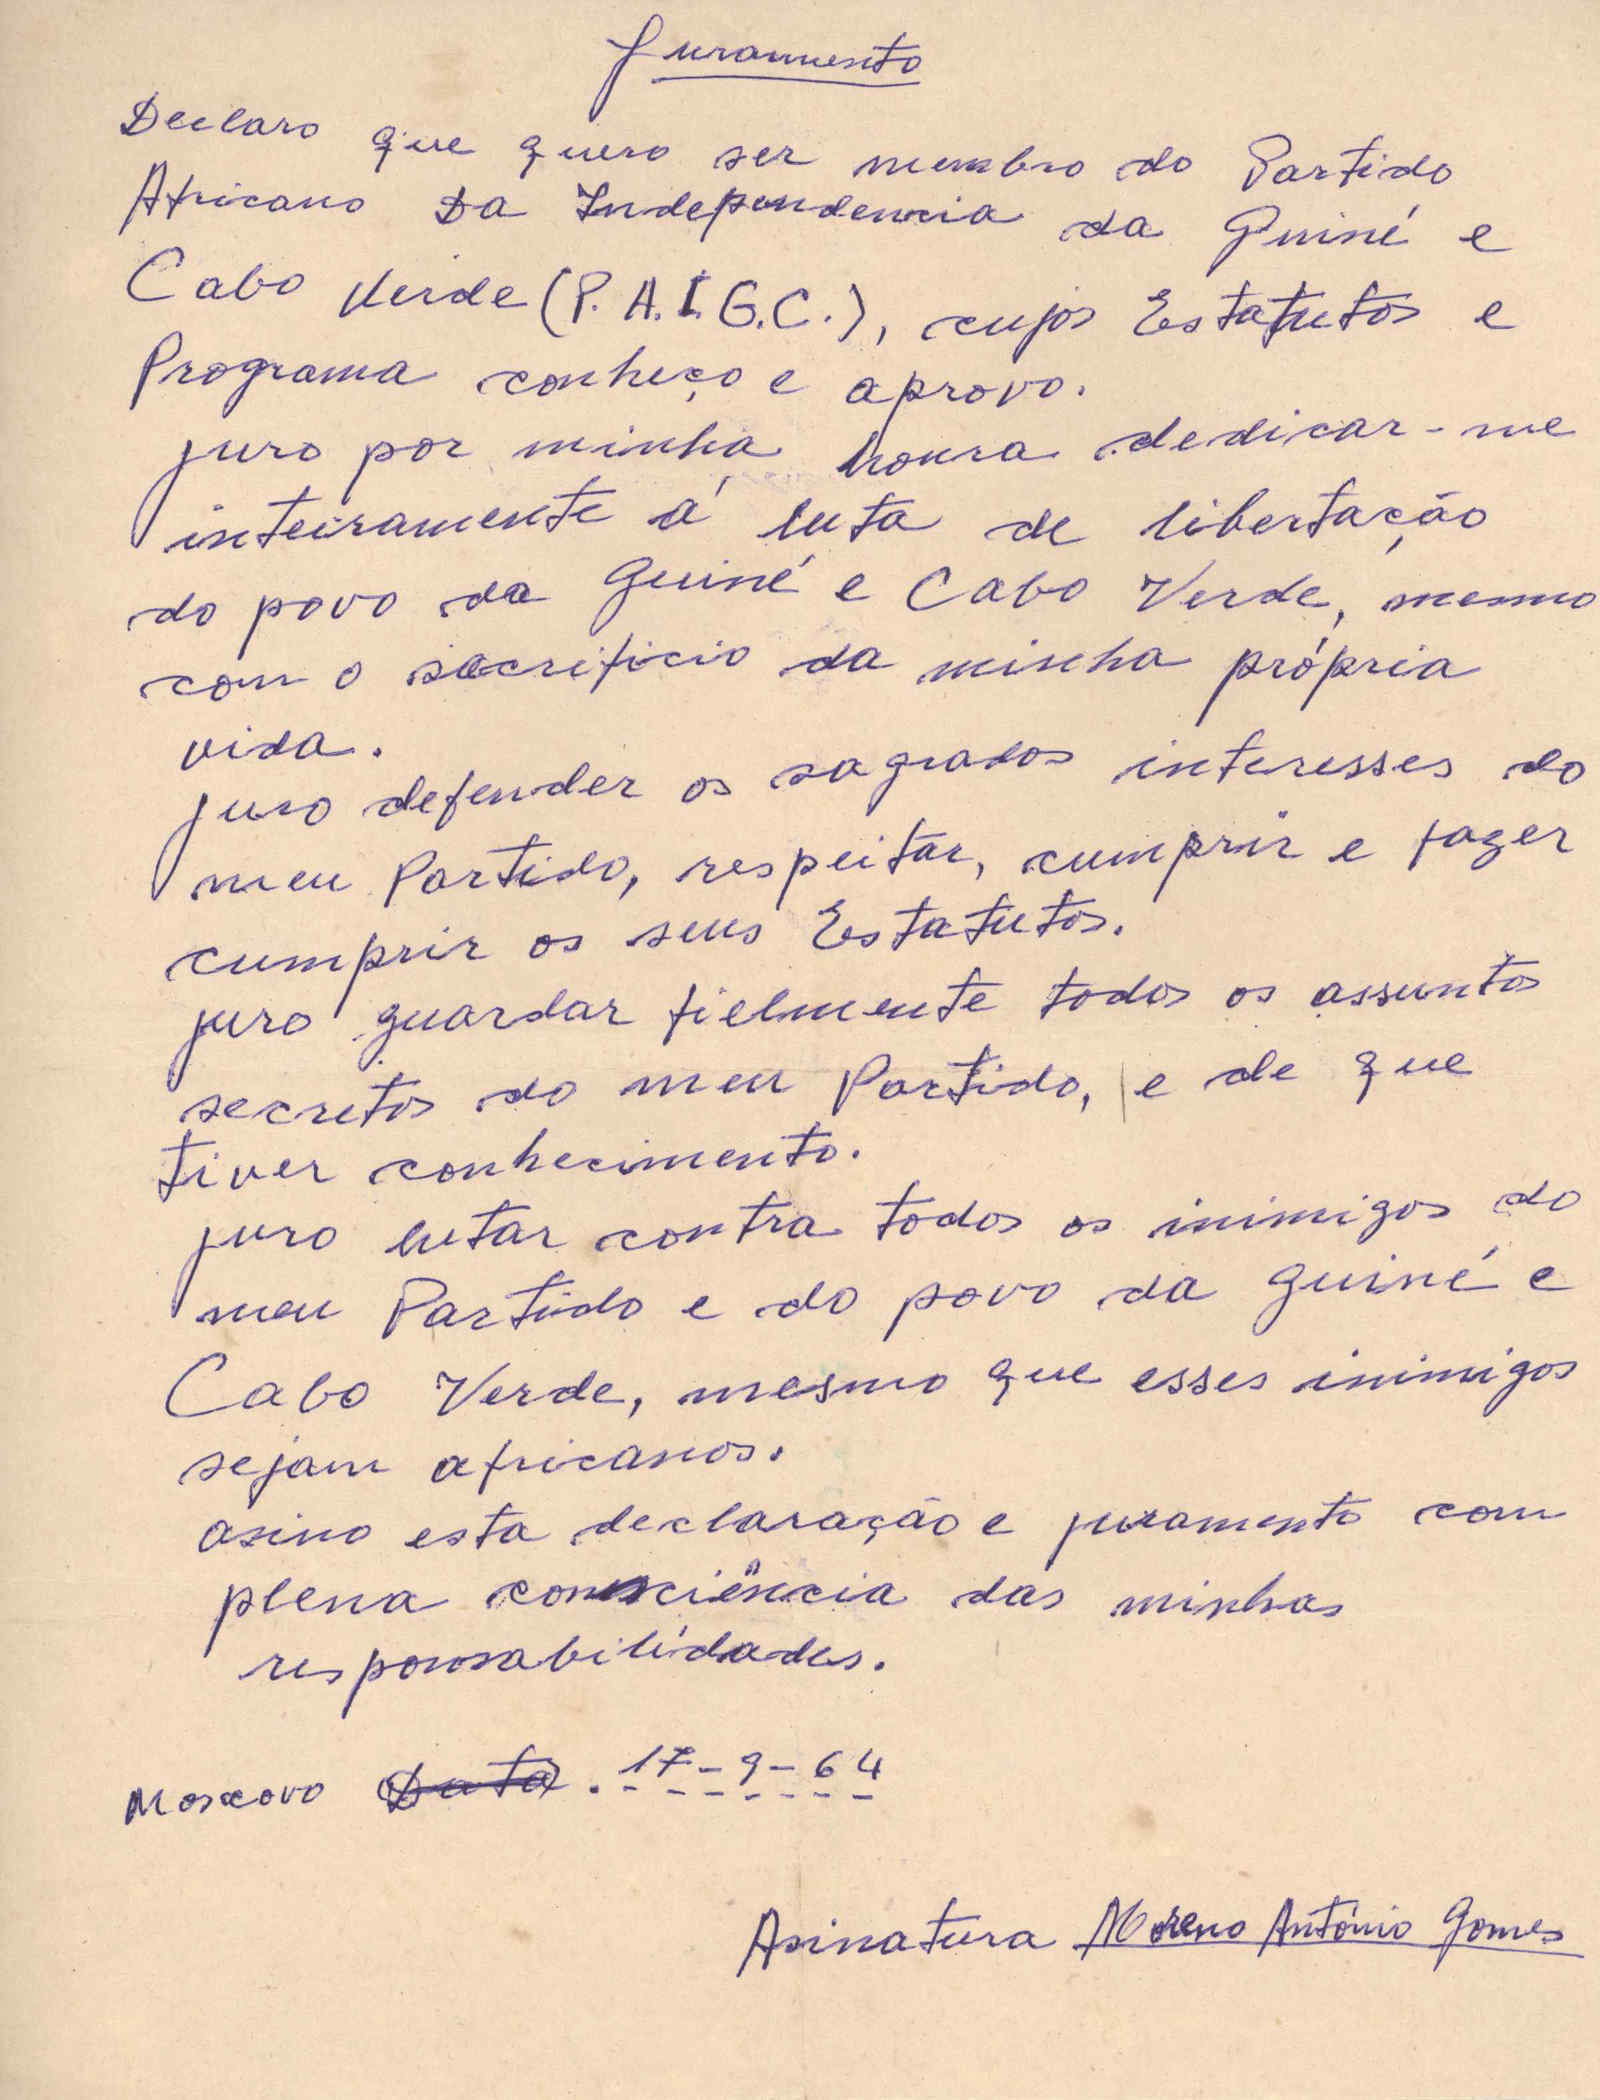 Juramento
Declaro que quero ser membro do Partido
Africano Da Independencia da Guiné e
Cabo Verde (P.A.I.G.C.), cujos Estatutos e
Programa conheço e aprovo.
juro por minha honra dedicar-me
inteiramente á luta de libertação
do povo da Guiné e Cabo Verde, mesmo
com o sacrificio da minha própria
vida.
juro defender os sagrados interesses do
meu Partido, respeitar, cumprir e fazer
cumprir os seus Estatutos.
juro guardar fielmente todos os assuntos
secretos do meu Partido, e de que
tiver conhecimento.
juro lutar contra todos os inimigos do
meu Partido e do povo da Guiné e
Cabo Verde, mesmo que esses inimigos
sejam africanos.
asino esta declaração e juramento com
plena consciência das minhas
responsabilidades.
Moscovo Data. 17-9-64
Asinatura Moreno António Gomes